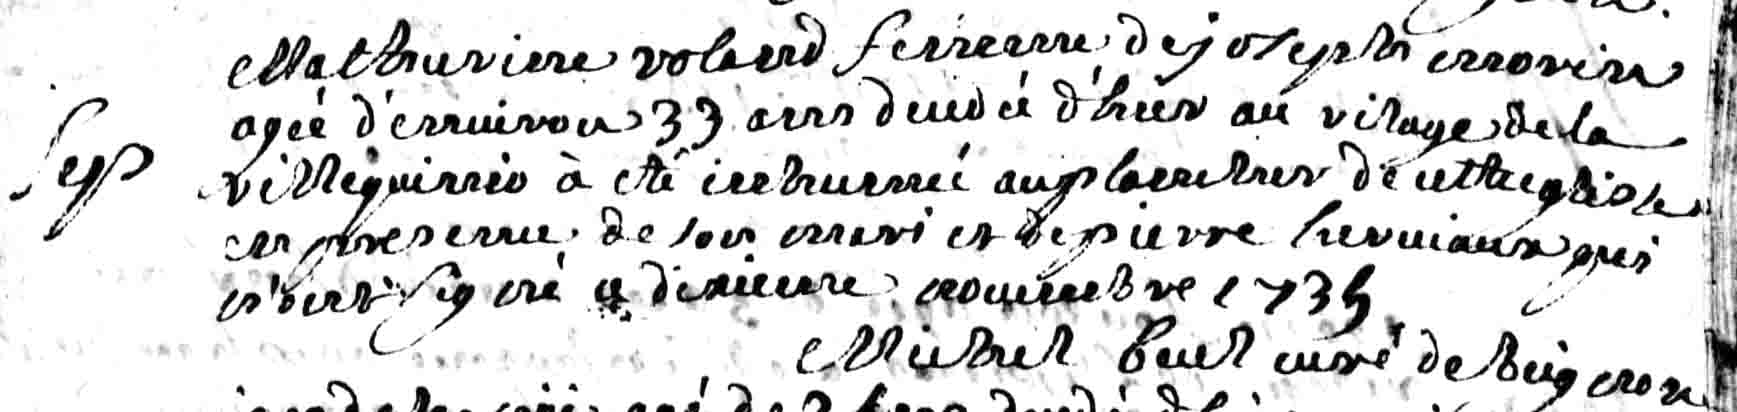 Mathurinne volard femme de joseph morin
Sep
agée d'environ 33 ans decedé d'hier au vilage de la
villéguinio à eté inhumé au placitre de cette eglise
en presence de son mari et de pierre herviaux qui
n'ont signé ce dixieme novembre 1735
Michel curé de Buignon
agé de 2